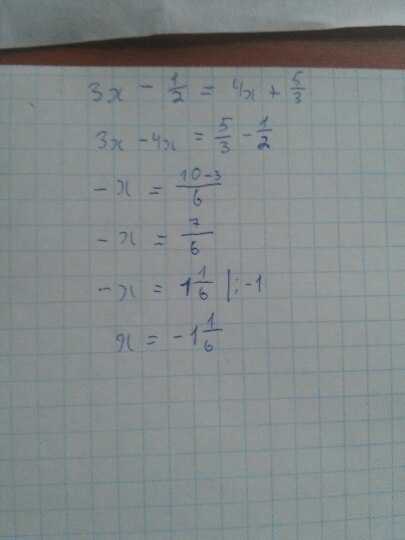 3x - 1/2 = 4x + 5/3
3x - 4x = 5/3 - 1/2
-x = 10-3/6
-x = 7/6
-x = 1 1/6 |: -1
x = -1 1/6